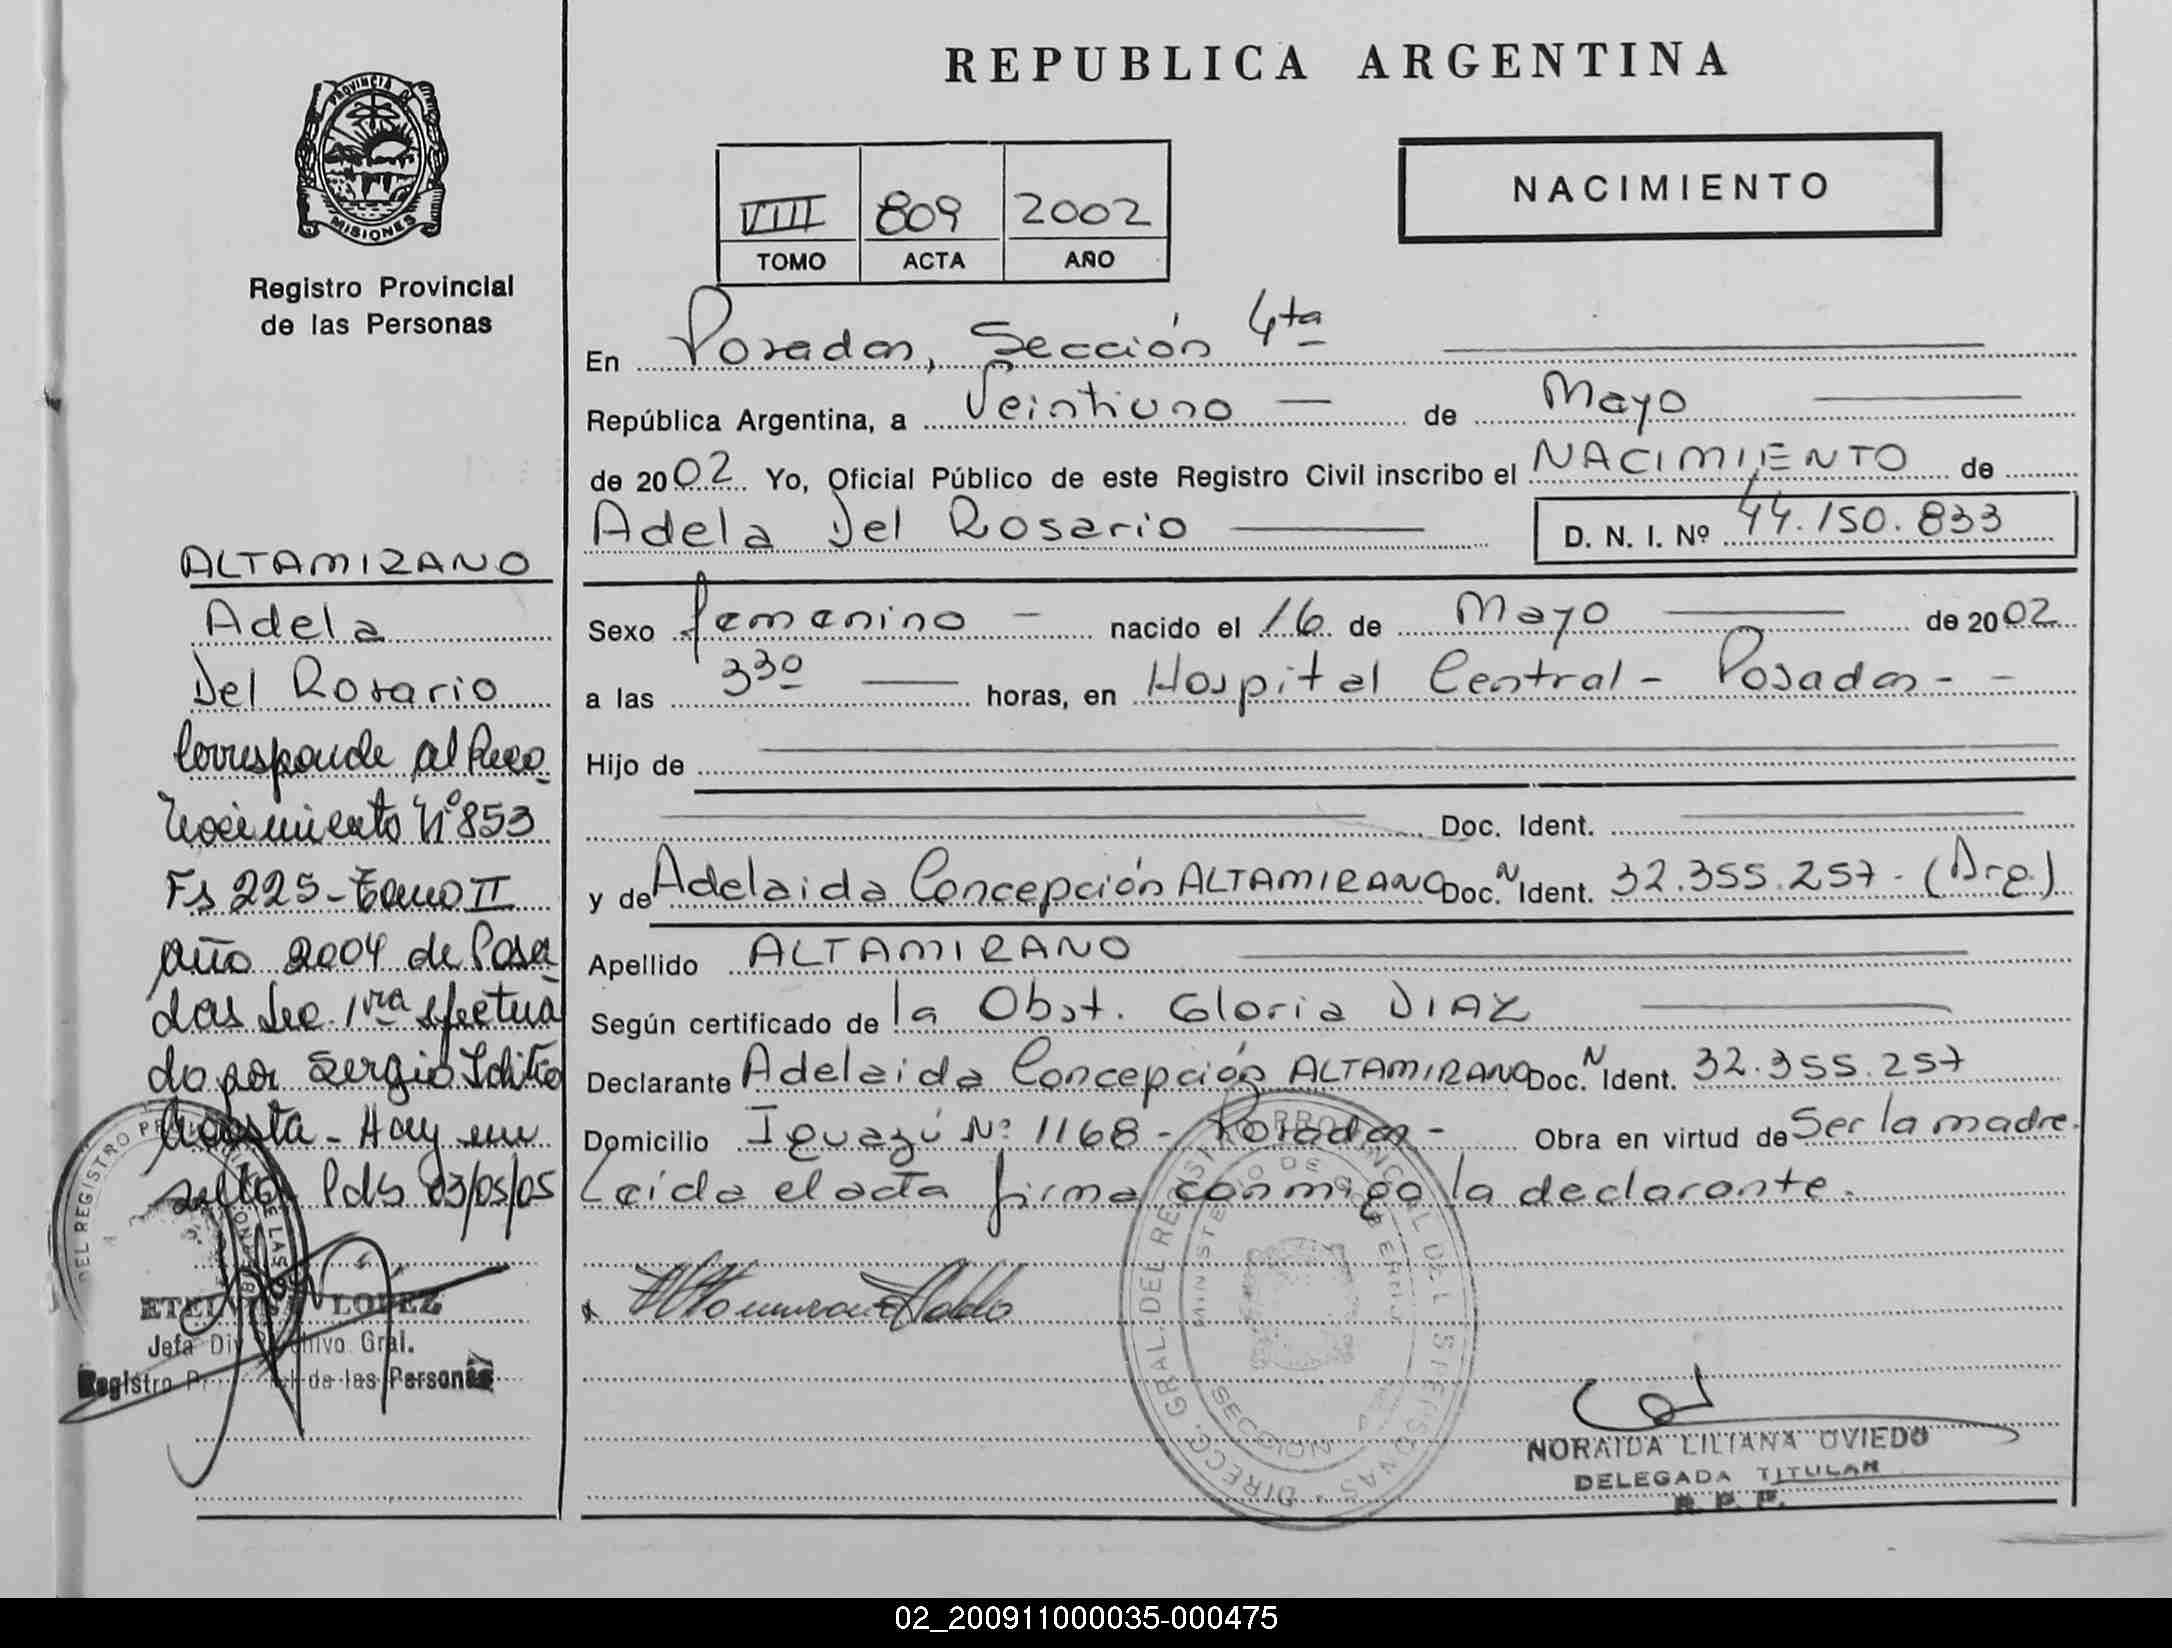 REPUBLICA ARGENTINA
PROVINCIA DE
MISIONES
Registro Provincial
de las Personas
VIII 809 2002
TOMO ACTA AÑO
NACIMIENTO
En Posadas, Sección 4ta
República Argentina, a Veintiuno de Mayo
de 2002 Yo, Oficial Público de este Registro Civil inscribo el NACIMIENTO de
Adela Del Rosario D. N. I. Nº 44.150.833
Sexo femenino nacido el 16 de Mayo de 2002
a las 3³⁰ horas, en Hospital Central - Posadas - -
Hijo de
Doc. Ident.
y de Adelaida Concepción ALTAMIRANO Doc. N Ident. 32.355.257 - (Arg.)
Apellido ALTAMIRANO
Según certificado de la Obst. Gloria DIAZ
Declarante Adelaida Concepción ALTAMIRANO Doc. N Ident. 32.355.257
Domicilio Iguazú Nº 1168 - Posadas - Obra en virtud de Ser la madre.
Leída el acta firma conmigo la declarante.
ALTAMIRANO
Adela
Del Rosario
Corresponde al Reco
nocimiento Nº 853
Fs 225 - Tomo II
año 2004 de Posa
das Sec. 1ra efectua
do por Sergio
Acosta - Hay un
sello. Pds 03/05/05
LOPEZ
Jefa Div Archivo Gral.
Registro Provincial de las Personas
DIRECC. GRAL. DEL REGISTRO PROVINCIAL DE LAS PERSONAS
MINISTERIO DE GOBIERNO
SECCION
NORAIDA LILIANA OVIEDO
DELEGADA TITULAR
R. P. P.
02_200911000035-000475